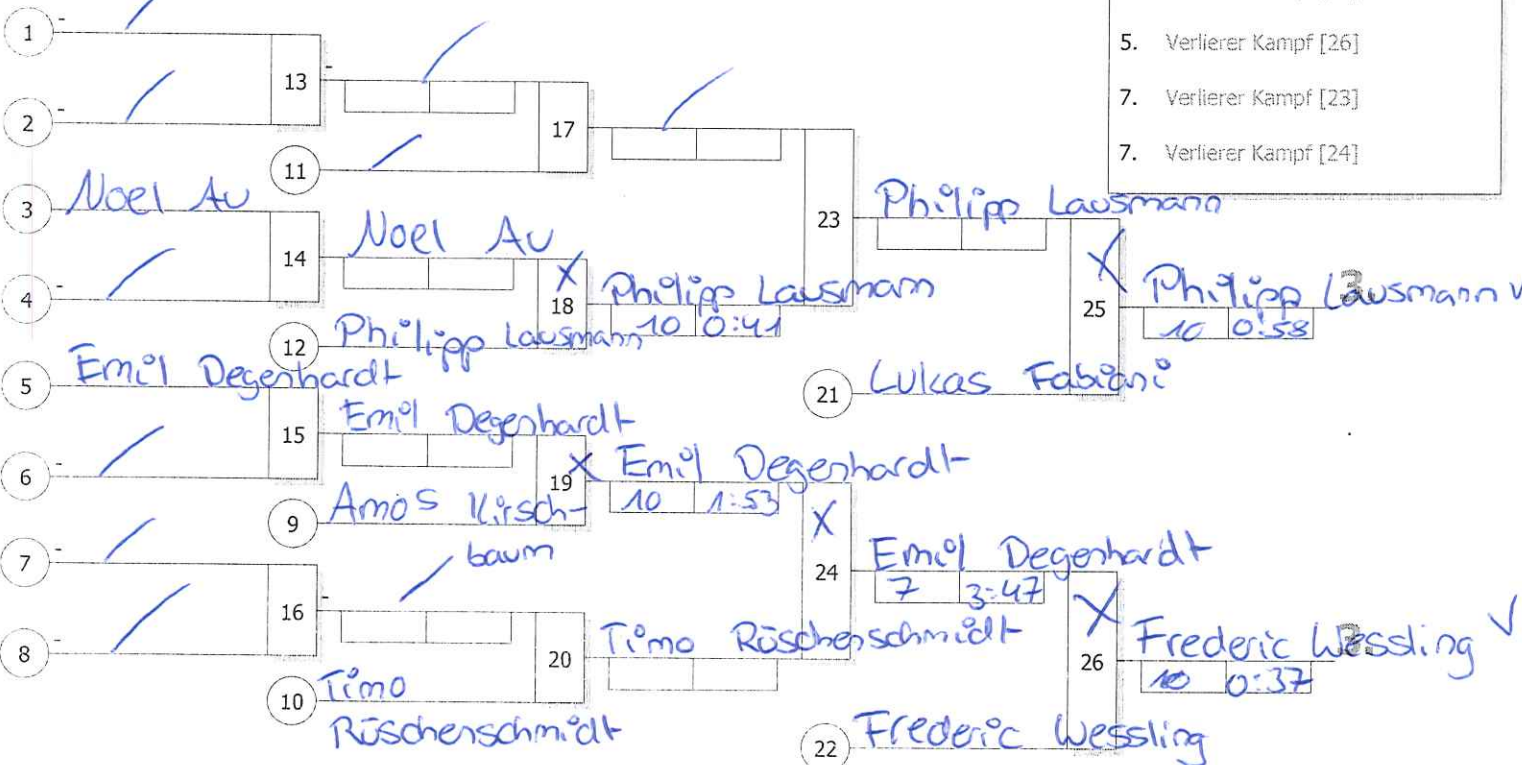 5. Verlierer Kampf [26]
7. Verlierer Kampf [23]
7. Verlierer Kampf [24]
1 -
2 -
13 -
11
17
3 Noel Au
4 -
14 Noel Au
12 Philipp Lausmann
18 X Philipp Lausmann
10 0:41
23 Philipp Lausmann
21 Lukas Fabiani
25 X Philipp Lausmann 3.
10 0:58
5 Emil Degenhardt
6 -
15 Emil Degenhardt
9 Amos Kirsch-
baum
19 X Emil Degenhardt
10 1:53
7 -
8 -
16 -
10 Timo
Rüschenschmidt
20 Timo Rüschenschmidt
24 X Emil Degenhardt
7 3:47
22 Frederic Wessling
26 X Frederic Wessling 3. ✓
10 0:37